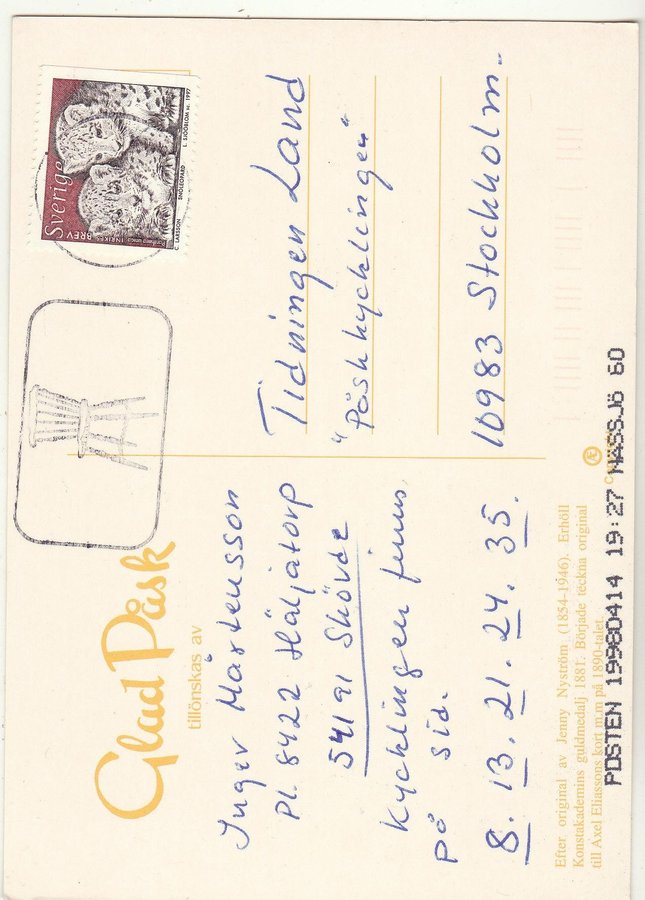 Glad Påsk
tillönskas av
Inger Mårtensson
Pl. 8422 Häljatorp
541 91 Skövde
Kycklingen finns
på sid.
8. 13. 21. 24. 35.
Sverige
INRIKES BREV
Panthera uncia
C. LARSSON SNÖLEOPARD L. SJÖÖBLOM H. 1997
Tidningen Land
"Påskkycklingen"
10983 Stockholm.
Efter original av Jenny Nyström (1854-1946). Erhöll
Konstakademins guldmedalj 1881. Började teckna original
till Axel Eliassons kort m.m på 1890-talet.
Æ
POSTEN 19980414 19:27 NÄSSJÖ 60